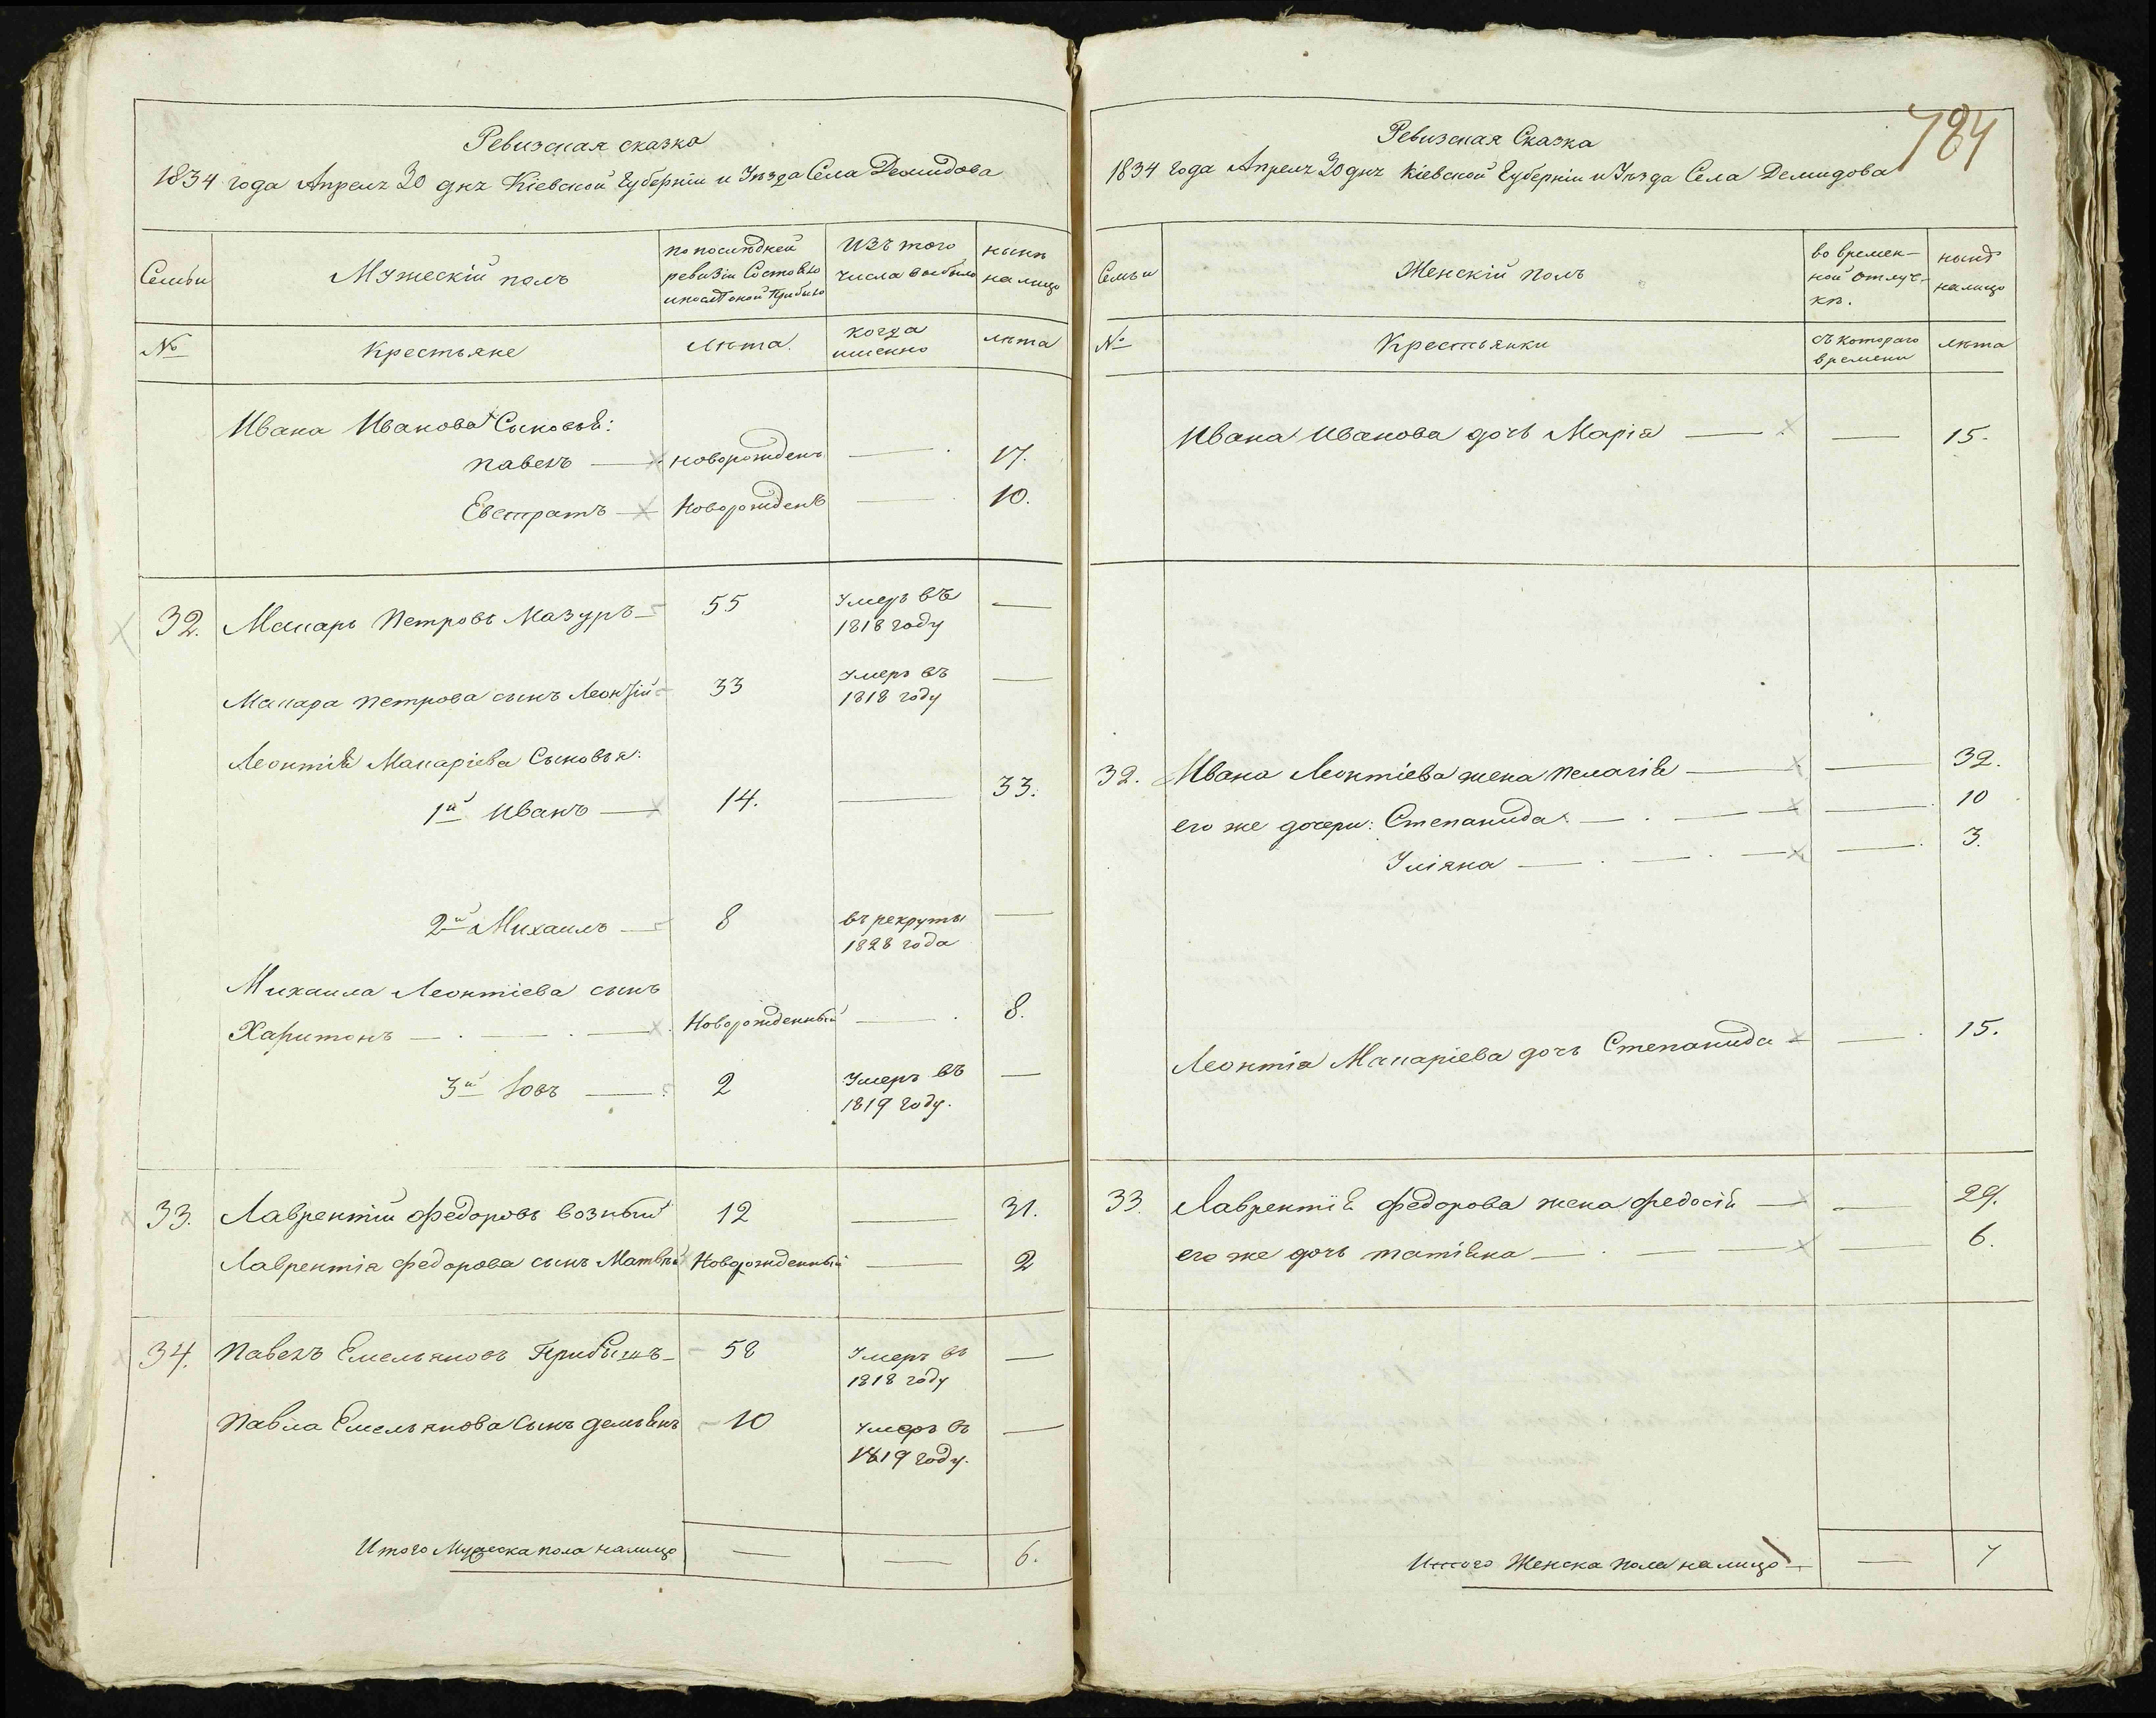 Ревизская сказка
1834 года Апреля 30 дня Кіевской Губерніи и Уѣзда Села Демидова
Семьи
Мужескій полъ
по послѣдней ревизіи Состояло и послѣ оной Прибыло
Изъ того числа выбыло
нынѣ на лицо
№
Крестьяне
лѣта
когда именно
лѣта
Ивана Иванова Сыновья:
Павелъ — новорожденъ — 17.
Евстратъ — Новорожденъ — 10.
32. Макаръ Петровъ Мазуръ — 55 Умеръ въ 1818 году —
Макара Петрова сынъ Леонтій 33 Умеръ въ 1818 году —
Леонтія Макаріева Сыновья:
1й Иванъ — 14. — 33.
2й Михаилъ — 8 въ рекруты 1828 года —
Михаила Леонтіева сынъ
Харитонъ — Новорожденный — 8.
3й Іовъ — 2 Умеръ въ 1819 году. —
33. Лаврентій Федоровъ Возный 12 — 31.
Лаврентія Федорова сынъ Матвѣй Новорожденный — 2
34. Павелъ Емельяновъ 58 Умеръ въ 1818 году —
Павла Емельянова Сынъ Демьянъ 10 Умеръ въ 1819 году. —
Итого Мужеска пола налицо — — 6.
784
Ревизская Сказка
1834 года Апреля 30 дня Кіевской Губерніи и Уѣзда Села Демидова
Семьи
Женскій полъ
во времен-
ной отлуч-
кѣ.
нынѣ налицо
№
Крестьянки
съ котораго времени
лѣта
Ивана Иванова дочь Марія — — 15.
32. Ивана Леонтіева жена Пелагія — — 32.
его же дочери: Степанида — — 10
Уліяна — — 3.
Леонтія Макаріева дочь Степанида — 15.
33. Лаврентія Федорова жена Федосія — — 29.
его же дочь Татіяна — — 6.
Итого Женска пола налицо — — 7